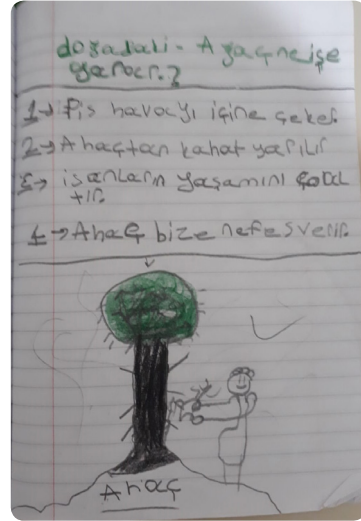 doğadaki - Ağaç ne işe
yarar.?
1→ Pis havayı içine çeker.
2→ Ahaçtan kahat yapılır
3→ isanların yaşamını
tır.
4→ Ahaç bize nefes verir.
Ahaç